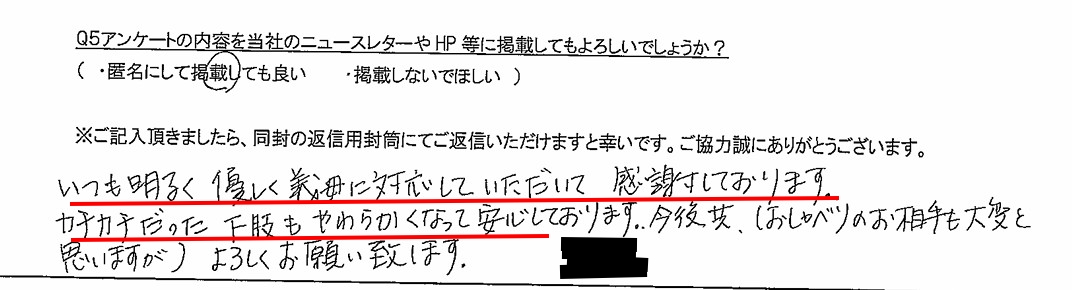 Q5アンケートの内容を当社のニュースレターやHP 等に掲載してもよろしいでしょうか?
( ・匿名にして掲載しても良い ・掲載しないでほしい )
※ご記入頂きましたら、同封の返信用封筒にてご返信いただけますと幸いです。ご協力誠にありがとうございます。
いつも明るく 優しく 義母に対応していただいて 感謝しております。
カチカチだった 下肢も やわらかくなって 安心しております。今後共、(おしゃべりのお相手も大変と
思いますが) よろしくお願い致します。